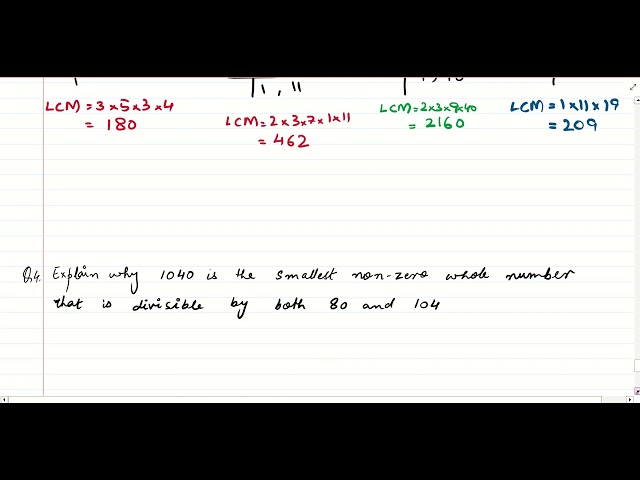 1, 11
LCM = 3 × 5 × 3 × 4
= 180
LCM = 2 × 3 × 7 × 1 × 11
= 462
LCM = 2 × 3 × 9 × 40
= 2160
LCM = 1 × 11 × 19
= 209
Q.4. Explain why 1040 is the smallest non-zero whole number
that is divisible by both 80 and 104